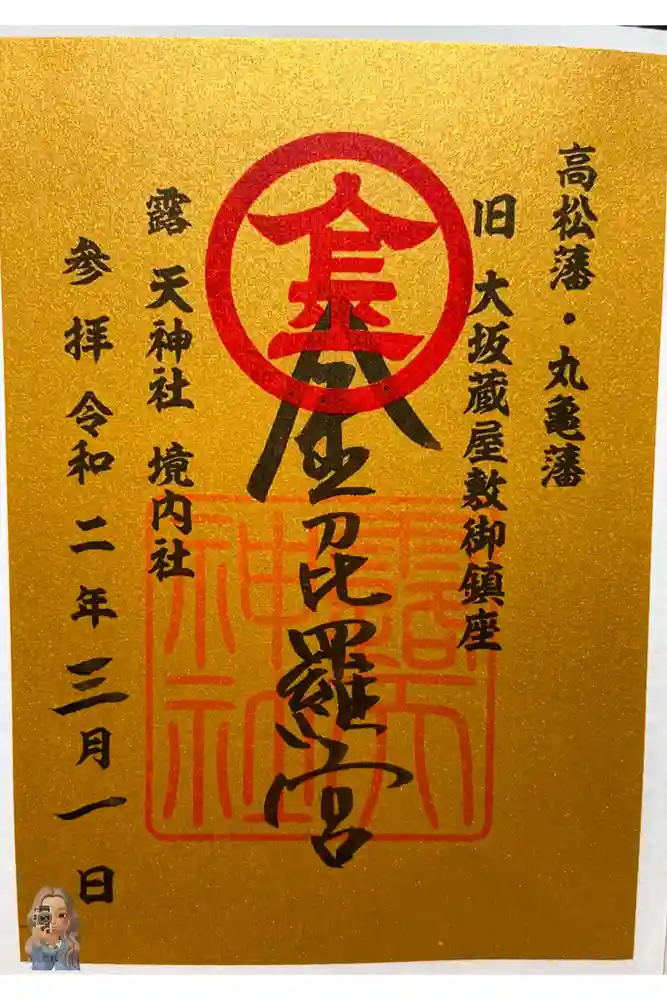 高松藩・丸亀藩
旧 大坂蔵屋敷御鎮座
金毘羅宮
露天神社
露 天神社 境内社
参拝 令和 二年 三月 一日